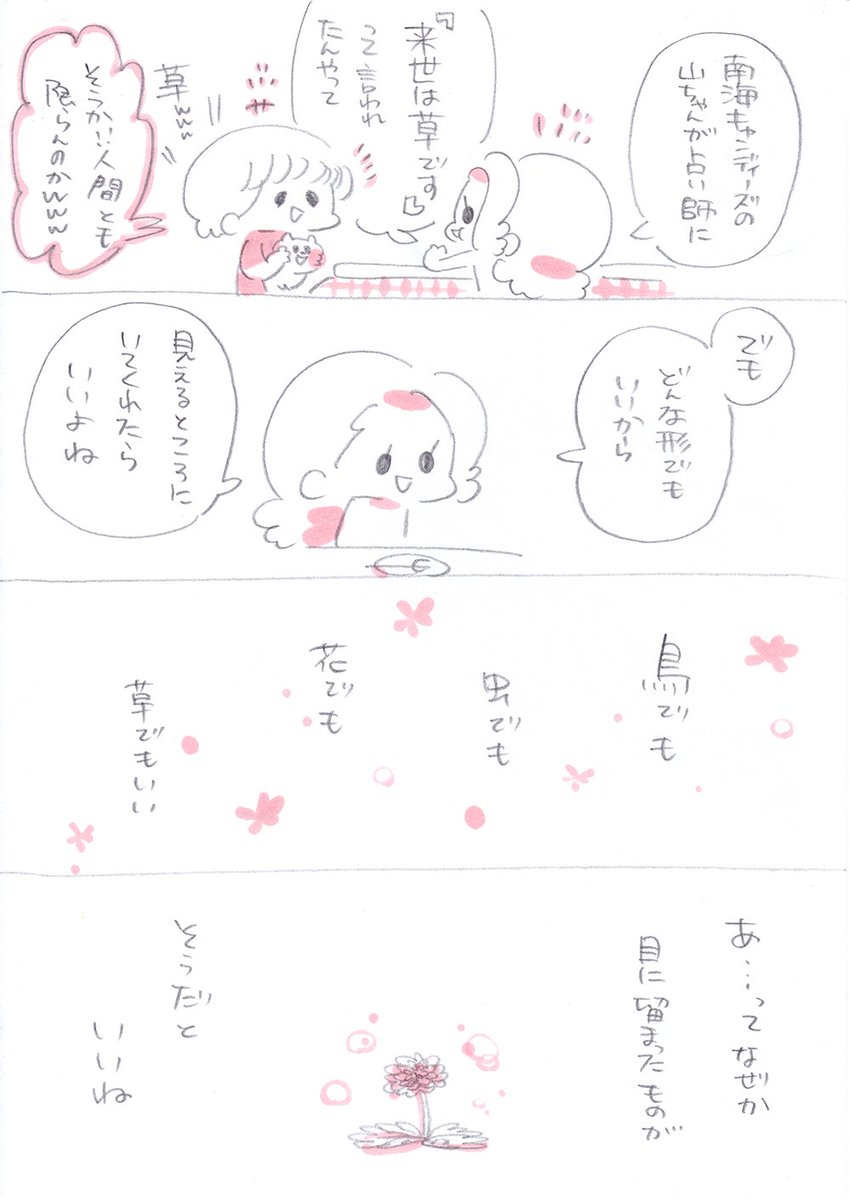 南海キャンディーズの
山ちゃんが占い師に
『来世は草です』
って言われ
たんやって
草www
そうか!!人間とも
限らんのかwww
でも
どんな形でも
いいから
見えるところに
いてくれたら
いいよね
鳥でも
虫でも
花でも
草でもいい
あ…ってなぜか
目に留まったものが
そうだと
いいね